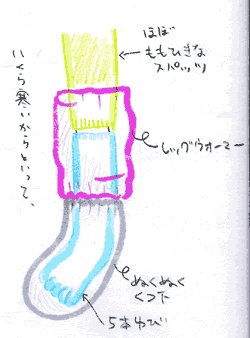 いくら寒いからといって、
ほぼ
ももひきな
スパッツ
レッグウォーマー
ぬくぬく
くつ下
5本ゆび